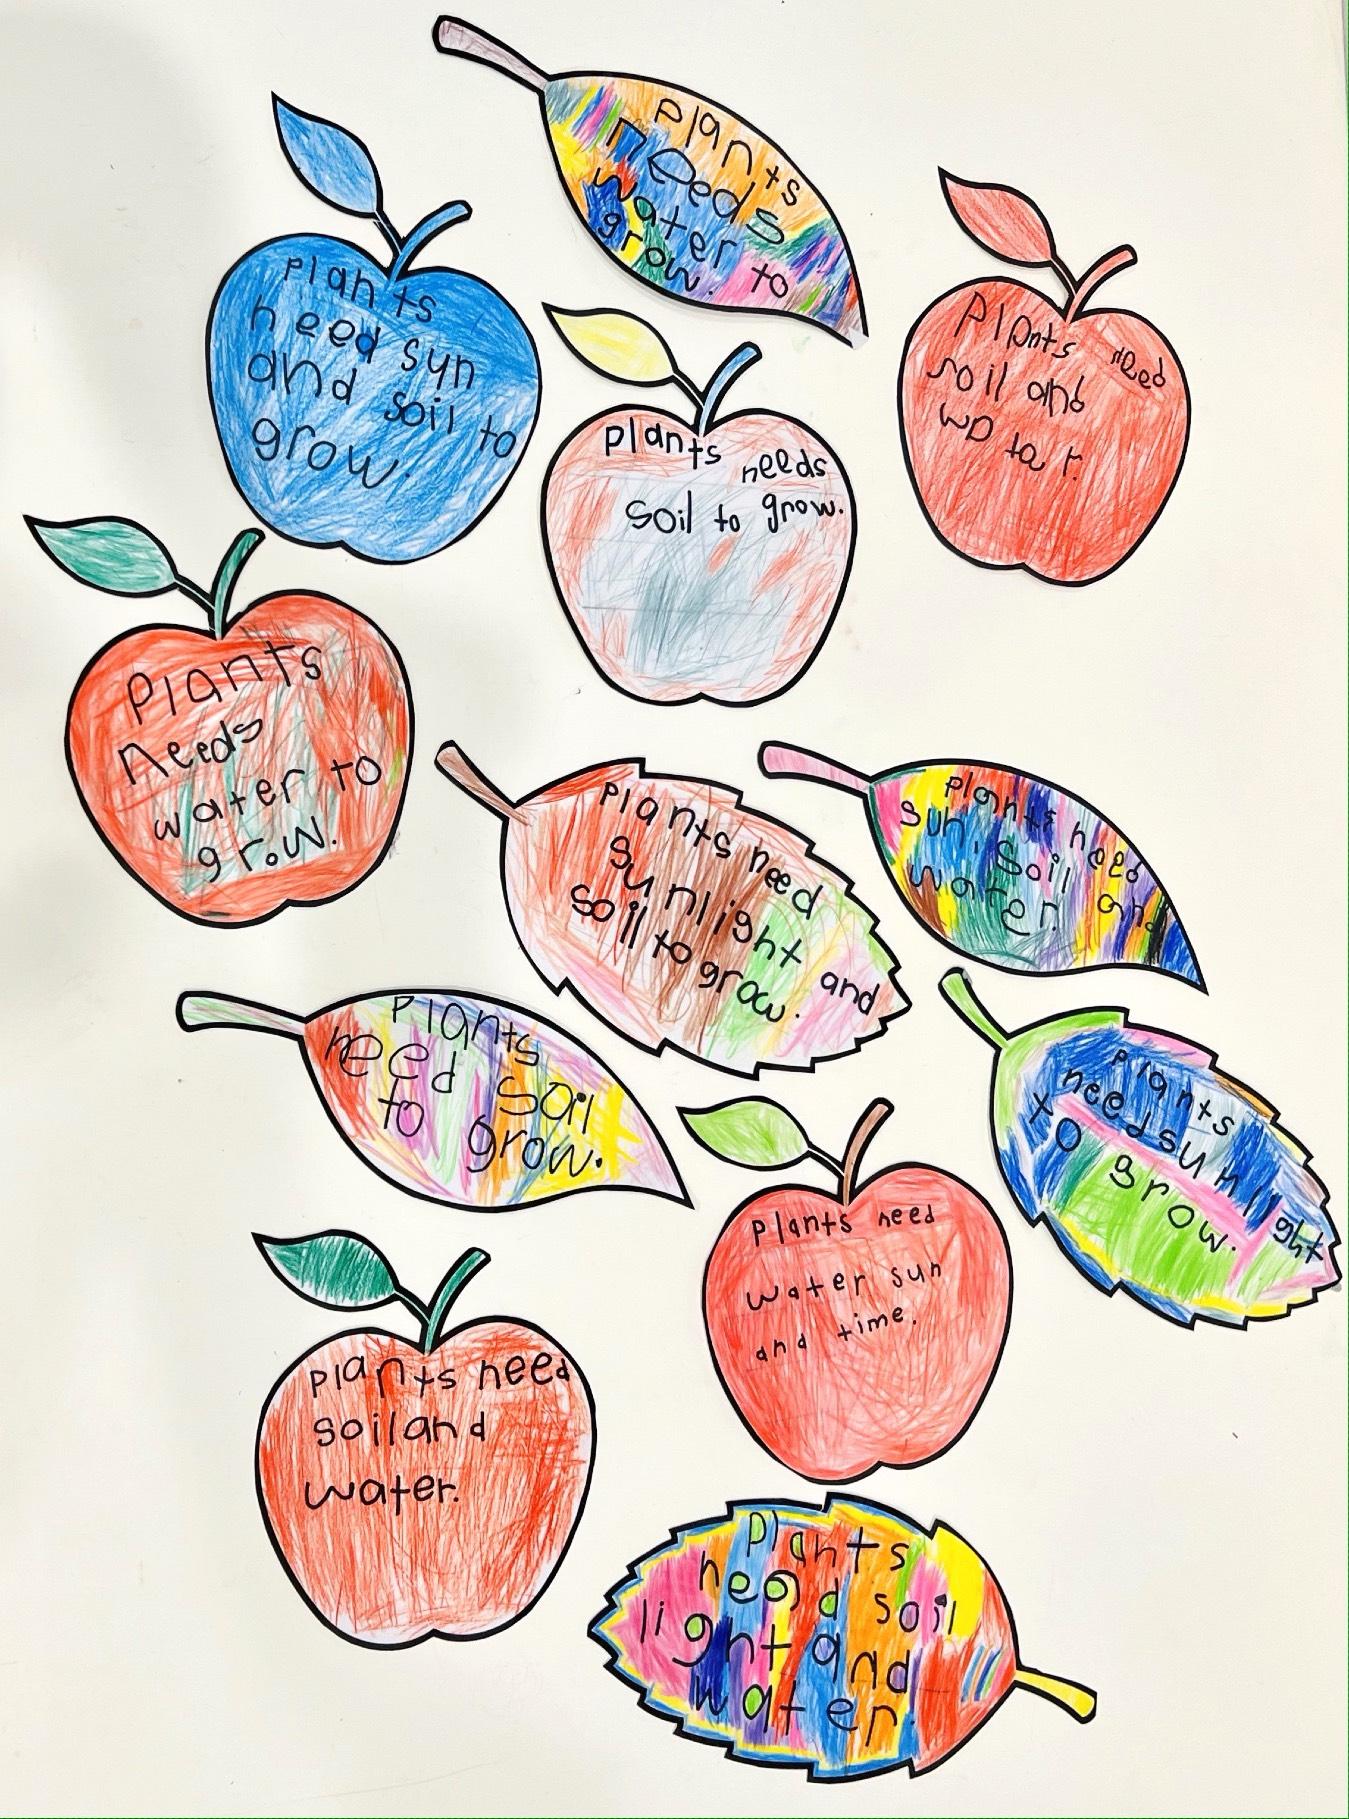 Plants
needs
water to
grow.
Plants
need sun
and soil to
grow.
Plants need
soil and
wa ta r
Plants needs
soil to grow.
Plants
Needs
water to
grow.
Plants need
sunlight and
soil to grow.
Plants need
sun, Soil and
water.
Plants
need soil
to grow.
Plants
need sunlight
to grow.
Plants need
water sun
and time.
Plants need
soil and
water.
Plants
need soil
light and
water